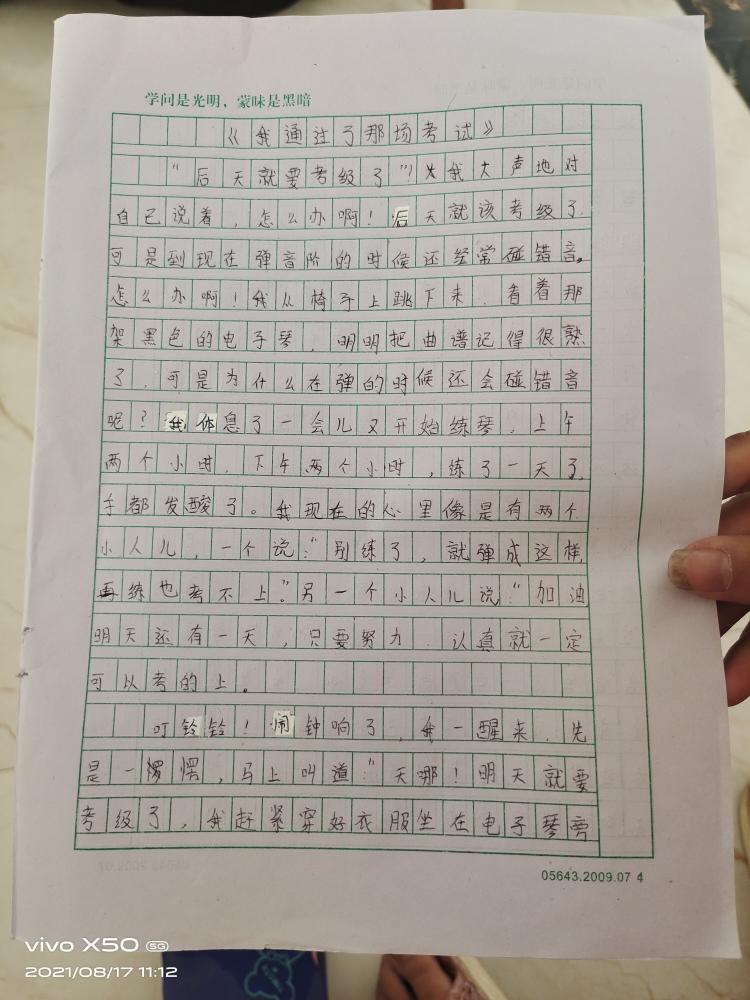 学问是光明，蒙昧是黑暗
《我通过了那场考试》
“后天就要考级了”！我大声地对
自己说着，怎么办啊！后天就该考级了，
可是到现在弹音阶的时候还经常碰错音。
怎么办啊！我从椅子上跳下来，看着那
架黑色的电子琴，明明把曲谱记得很熟
了，可是为什么在弹的时候还会碰错音
呢？我休息了一会儿又开始练琴，上午
两个小时，下午两个小时，练了一天了，
手都发酸了。我现在的心里像是有两个
小人儿，一个说：“别练了，就弹成这样，
再练也考不上”。另一个小人儿说：“加油
明天还有一天，只要努力，认真就一定
可以考的上。
叮铃铃！闹钟响了，我一醒来，先
是一愣愣，马上叫道：“天哪！明天就要
考级了，我赶紧穿好衣服坐在电子琴旁
05643.2009.07 4
vivo X50 5G
2021/08/17 11:12